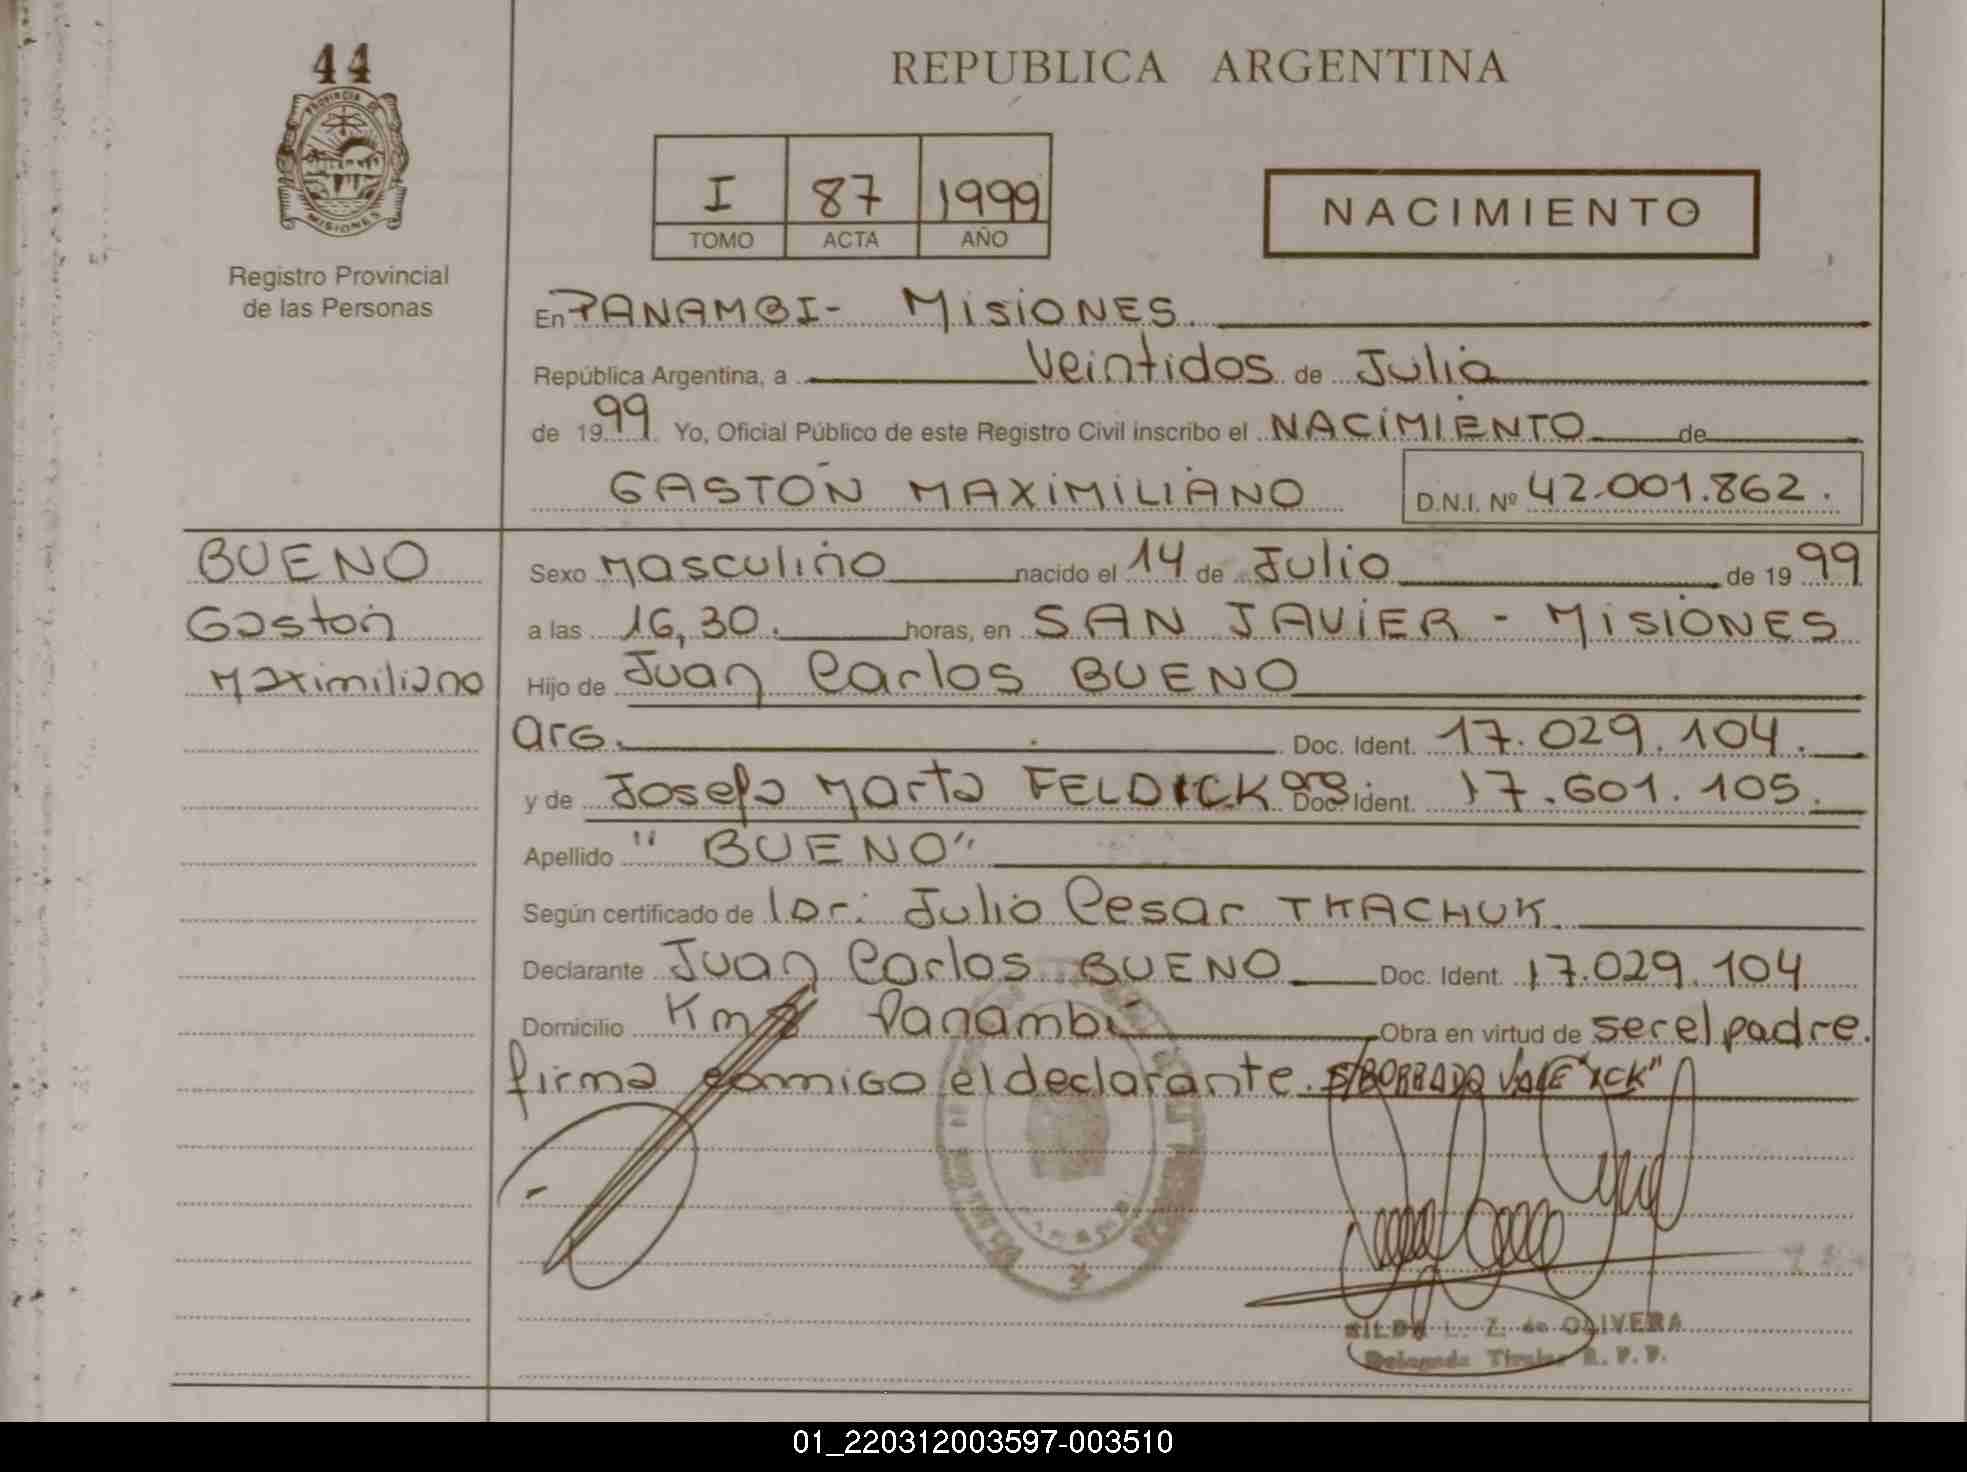 44
PROVINCIA DE
MISIONES
Registro Provincial
de las Personas
REPUBLICA ARGENTINA
I 87 1999
TOMO ACTA AÑO
NACIMIENTO
En PANAMBI- MisiONES.
República Argentina, a veintidos de Julio
de 1999 Yo, Oficial Público de este Registro Civil inscribo el NACiMIENTO de
GASTÓN MAXiMiLiANO D.N.I. Nº 42.001.862.
BUENO
Gastón
Maximiliano
Sexo Masculino nacido el 14 de Julio de 1999
a las 16,30. horas, en SAN JAViER - MisiONES
Hijo de Juan Carlos BUENO
arg. Doc. Ident. 17.029.104.
y de Josefa Marta FELDICK arg Doc. Ident. 17.601.105.
Apellido " BUENO"
Según certificado de 1Dr: Julio Cesar TKACHUK.
Declarante Juan Carlos BUENO Doc. Ident. 17.029.104
Domicilio Km 8 Panambí Obra en virtud de ser el padre.
firma conmigo el declarante. S/BORRADO VALE "ICK"
HILDA L. Z. de OLIVERA
Delegada Titular R. P. P.
01_220312003597-003510